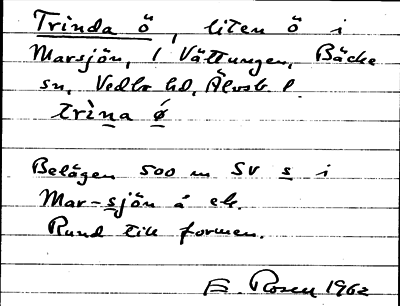 Trinda ö, liten ö i
Marsjön, i Vättungen, Bäcke
sn, Vedbo hd, Älvsb. l.
trìna ǿ
Belägen 500 m SV s i
Mar-sjön å ek.
Rund till formen.
E. Rosen 1962